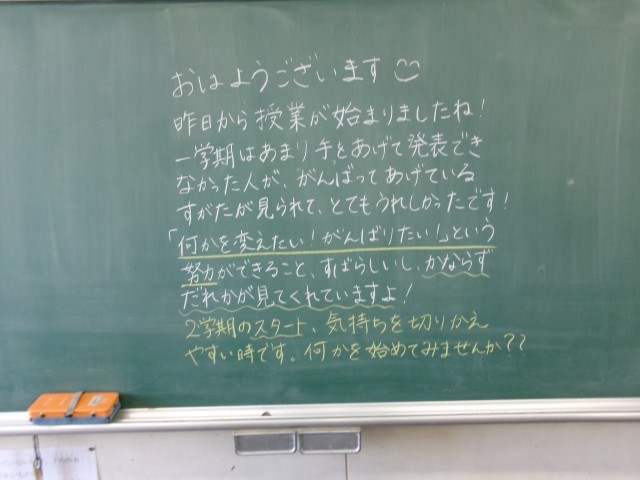 おはようございます
昨日から授業が始まりましたね!
一学期はあまり手をあげて発表でき
なかった人が、がんばってあげている
すがたが見られて、とてもうれしかったです!
「何かを変えたい!がんばりたい!」という
努力ができること、すばらしいし、かならず
だれかが見てくれていますよ!
2学期のスタート、気持ちを切りかえ
やすい時です。何かを始めてみませんか??